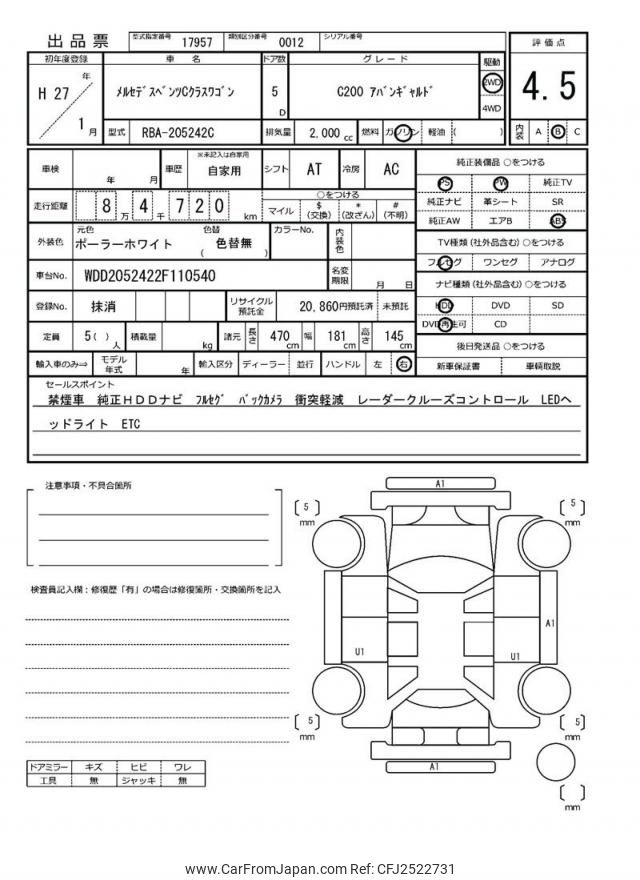 出品票 型式指定番号 17957 類別区分番号 0012 シリアル番号
初年度登録 車名 ドア数 グレード 駆動 評価点
H 27 年 1 月 ﾒﾙｾﾃﾞｽﾍﾞﾝﾂCｸﾗｽﾜｺﾞﾝ 5 D C200 ｱﾊﾞﾝｷﾞｬﾙﾄﾞ 2WD 4WD 4.5
型式 RBA-205242C 排気量 2,000 cc 燃料 ガソリン 軽油 ( ) 内装 A B C
車検 年 月 車歴 ※未記入は自家用 自家用 シフト AT 冷房 AC 純正装備品 ○をつける
PS PW 純正TV
走行距離 8 万 4 千 7 2 0 km ○をつける マイル $ (交換) * (改ざん) # (不明) 純正ナビ 革シート SR
純正AW エアB ABS
外装色 元色 ポーラーホワイト 色替 ( 色替無 ) カラーNo. 内装色 TV種類 (社外品含む) ○をつける
フルセグ ワンセグ アナログ
車台No. WDD2052422F110540 名変期限 月 日 ナビ種類 (社外品含む) ○をつける
登録No. 抹消 リサイクル預託金 20,860円預託済 未預託 HDD DVD SD
DVD再生可 CD
定員 5 ( ) 人 積載量 kg 諸元 長さ 470 cm 幅 181 cm 高さ 145 cm 後日発送品 ○をつける
輸入車のみ⇒ モデル年式 年 輸入区分 ディーラー 並行 ハンドル 左 右 新車保証書 車輌取説
セールスポイント
禁煙車 純正HDDナビ ﾌﾙｾｸﾞ ﾊﾞｯｸカメラ 衝突軽減 レーダークルーズコントロール LEDヘ
ッドライト ETC
注意事項・不具合箇所
A1
( 5 ) mm ( 5 ) mm
検査員記入欄：修復歴「有」の場合は修復箇所・交換箇所を記入
U1 U1 A1
( 5 ) mm ( 5 ) mm
A1
ドアミラー キズ ヒビ ワレ
工具 無 ジャッキ 無
( ) mm
www.CarFromJapan.com Ref: CFJ2522731